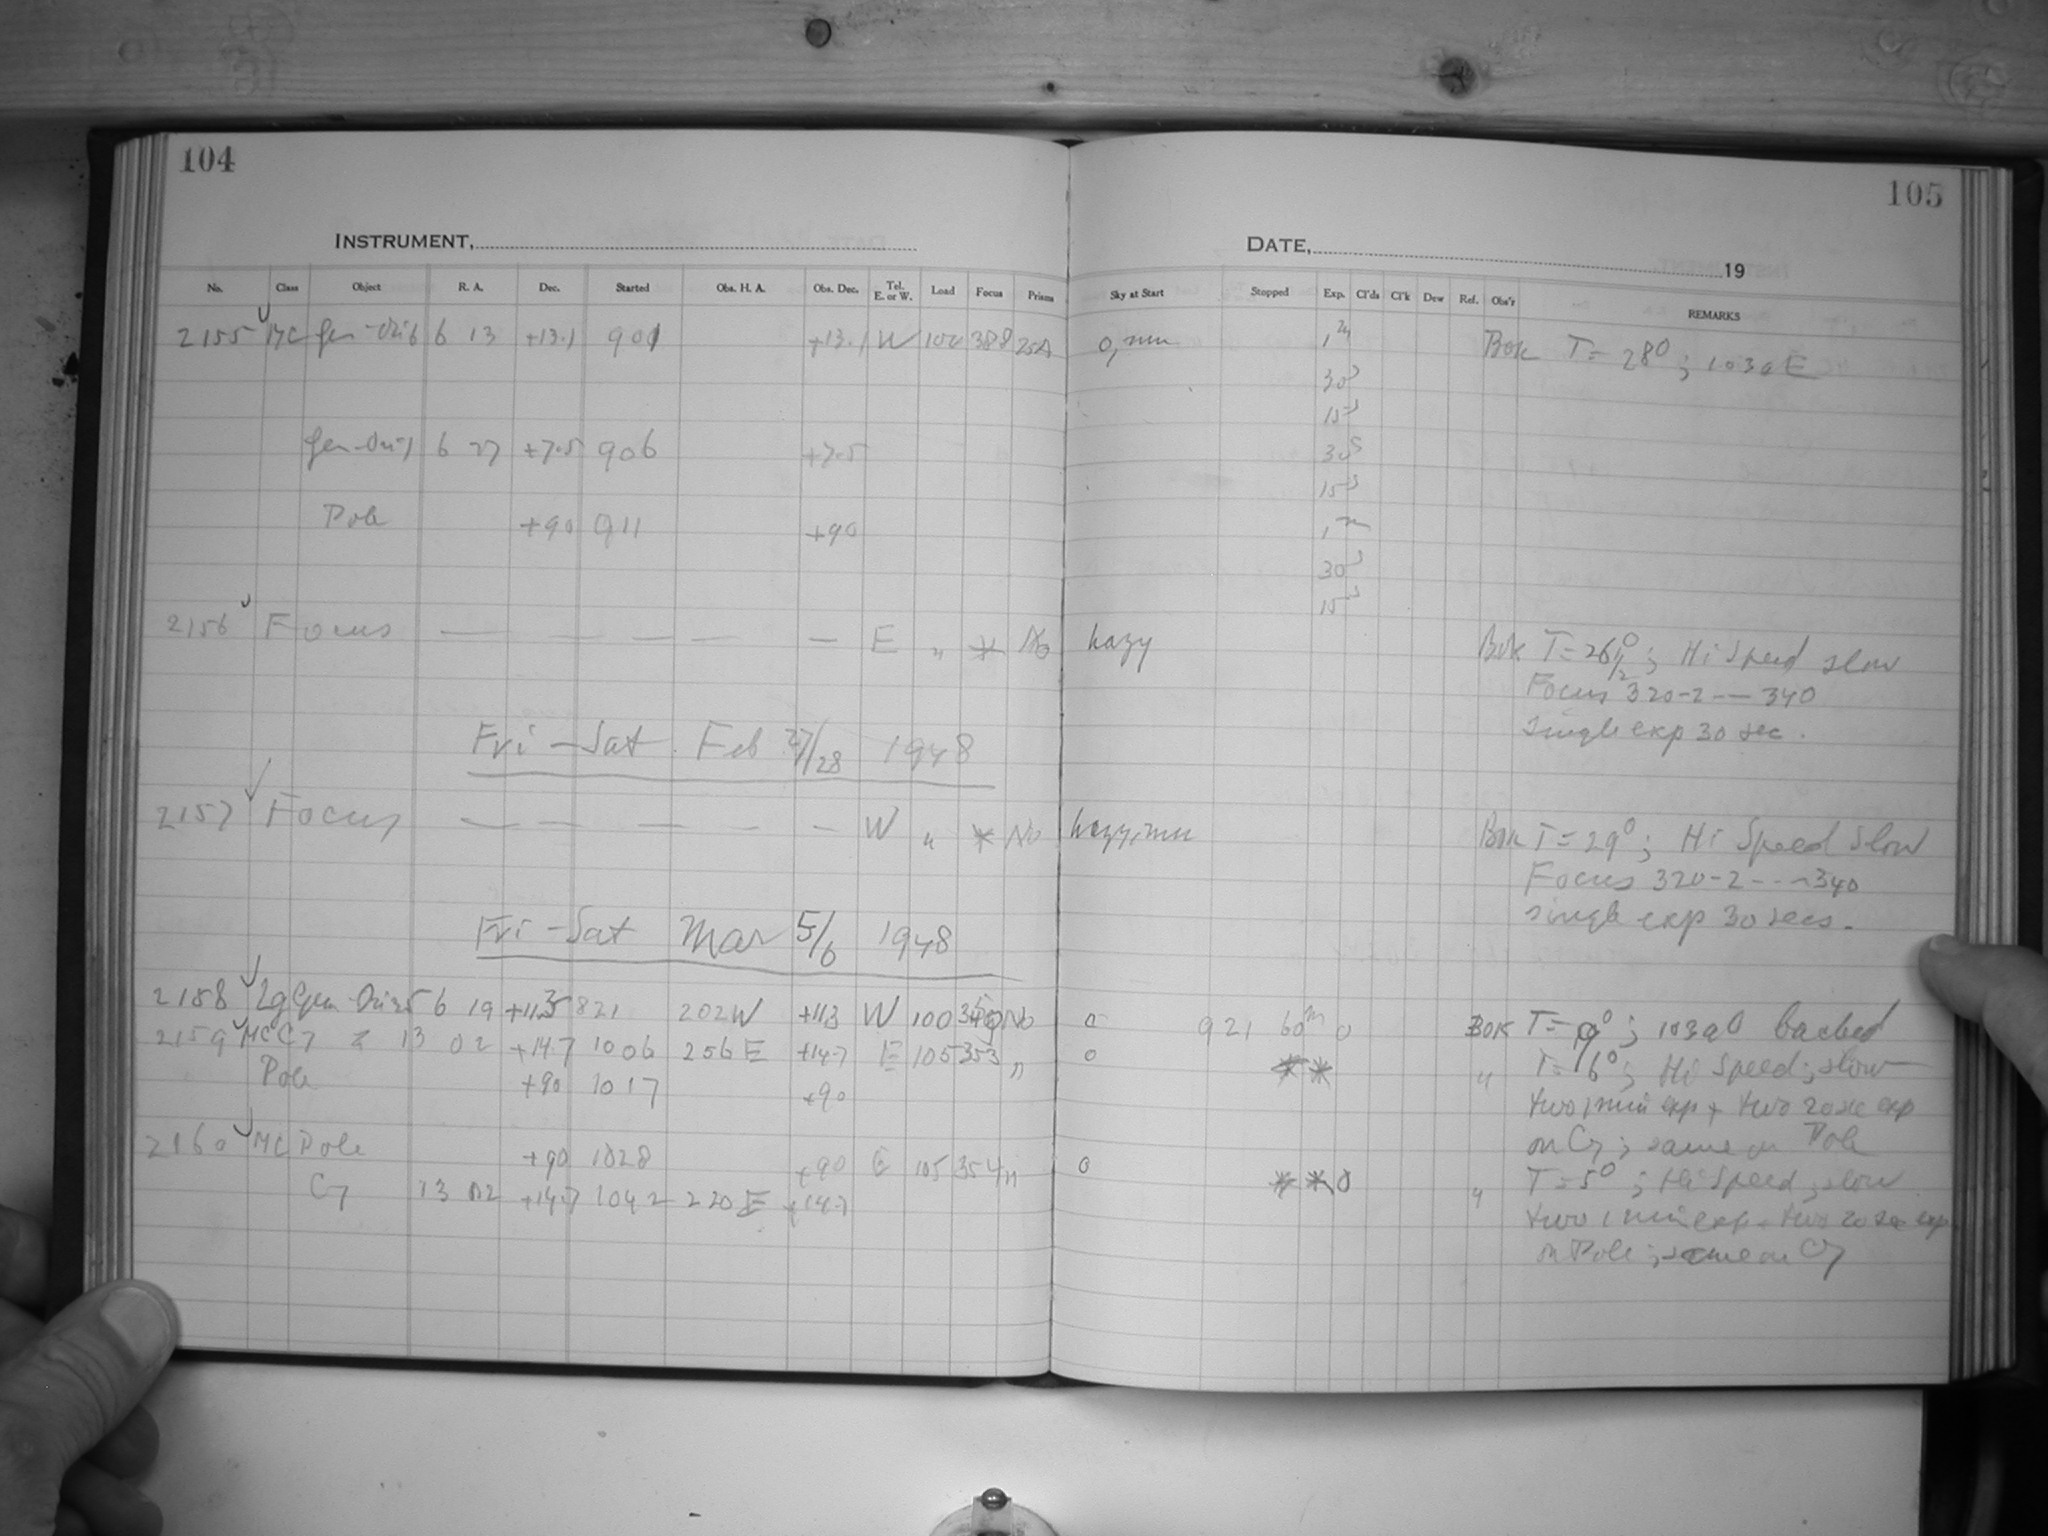 104
105
INSTRUMENT,
DATE, 19
No. Class Object R. A. Dec. Started Obs. H. A. Obs. Dec. Tel. E. or W. Load Focus Prism Sky at Start Stopped Exp. Cl'ds Cl'k Dew Ref. Obs'r REMARKS
2155 MC Gem-Ori 6 6 13 +13.1 901 +13.1 W 100 388 25A 0, mm 1m Bok T= 28°; 103a E
30s
15s
Gem-Ori 1 6 27 +7.5 906 +7.5 30s
15s
Pole +90 911 +90 1m
30s
15s
2156 Focus — — — — — E " * No hazy Bok T=26 1/2°; Hi Speed slow
Focus 320-2-—340
Single exp 30 sec.
Fri - Sat Feb 27/28 1948
2157 Focus — — — — — W " * No hazy, mm Bok T=29°; Hi Speed Slow
Focus 320-2---340
single exp 30 secs.
Fri - Sat Mar 5/6 1948
2158 Lg Gem-Ori 6 19 821 202W +11.3 W 100 No 0 921 60m 0 BOK 103a0 backed
2159 MC C7 13 02 +14.7 1006 256 E +14.7 E 105 353 " 0 ** " Hi Speed; slow
Pole +90 1017 +90 two 1 min exp + two 20 sec exp
on C7; same on Pole
2160 MC Pole +90 1028 +90 E 105 354 " 0 **0 " T=5°; Hi Speed; slow
C7 13 02 +14.7 1042 220 E +14.7 two 1 min exp + two 20 sec exp
on Pole; same on C7